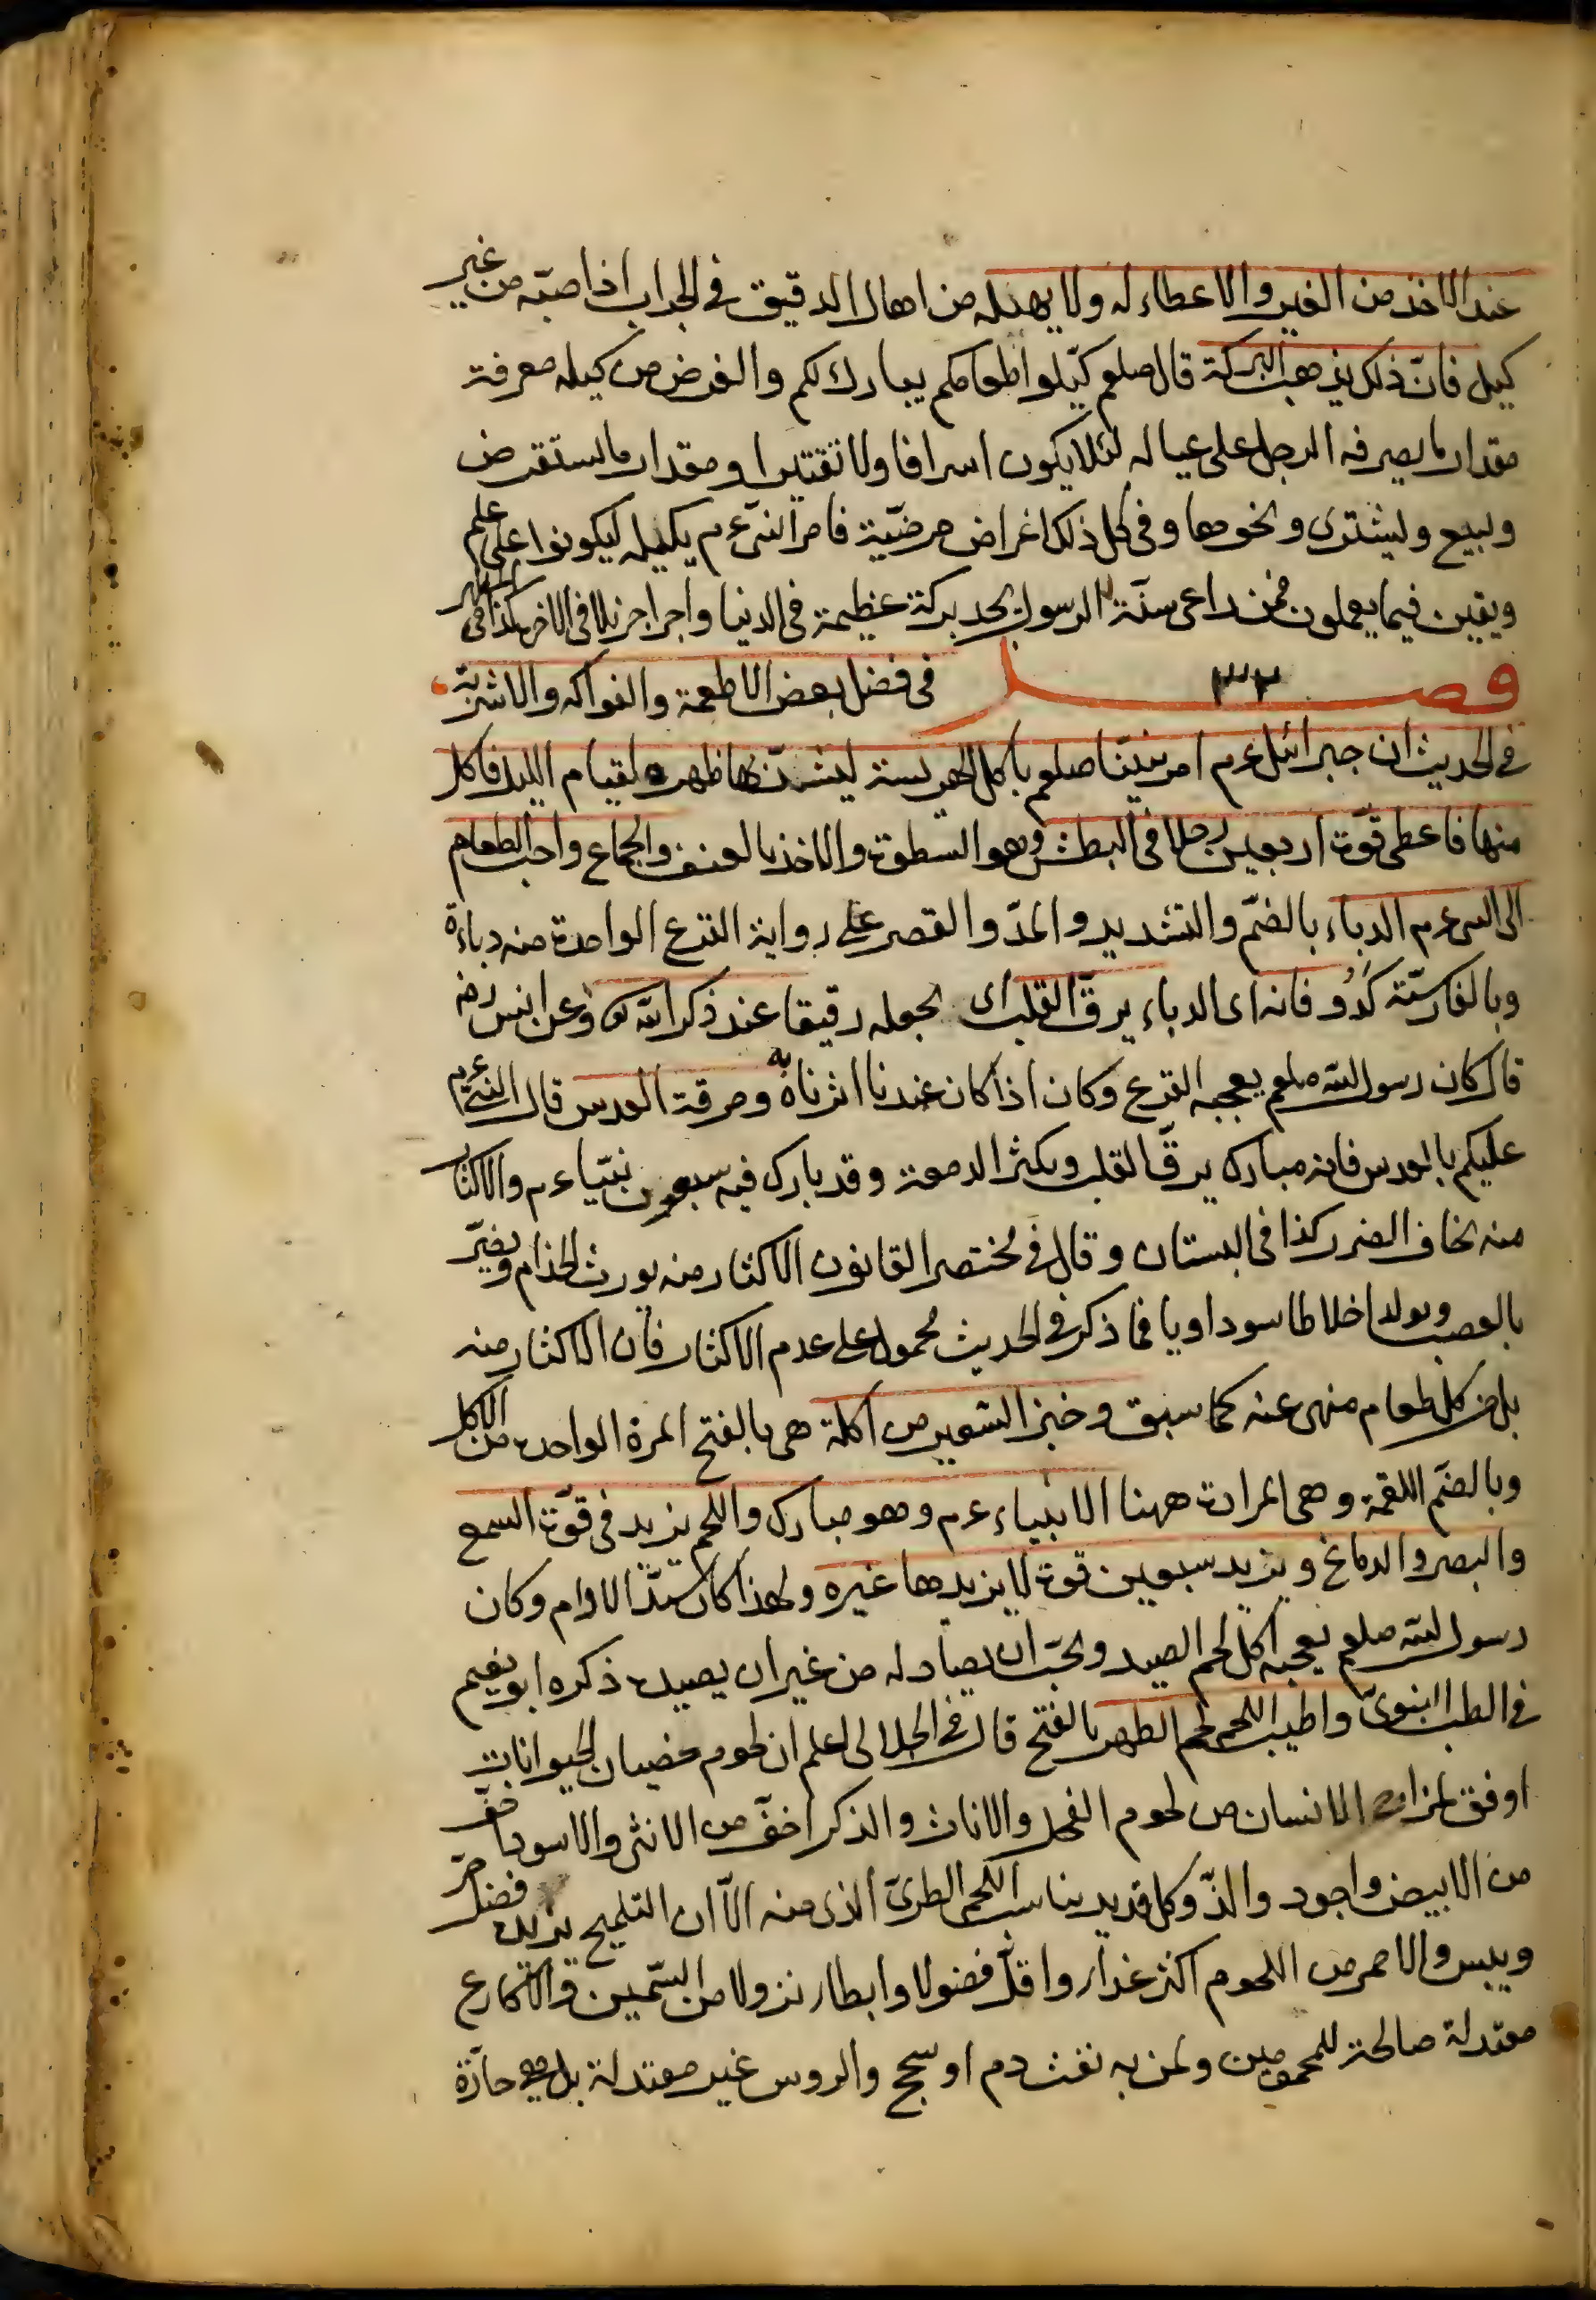 عند الاخذ من الغير والاعطاء له ولا يهيله من اهال الدقيق في الجراب اذا صبّه من غير
كيل فانّ ذلك يذهب البركة قال صلعم كيّلوا طعامكم يبارك لكم والغرض من كيله معرفة
مقدار ما يصرفه الرجل على عياله لئلا يكون اسرافا ولا تقتيرا ومقدار ما يستقرض
ويبيع ويشترى ونحوها وفى كل ذلك اغراض مرضيّة فامر النبى عم بكيله ليكونوا على علم
ويقين فيما يعملون فمن راعى سنّة الرسول يجد بركة عظيمة فى الدنيا واجرا جزيلا فى الاخرة كذا فى
فصل ٣٣ فى فضل بعض الاطعمة والفواكه والاشربة
فى الحديث ان جبرائل عم امر نبيّنا صلعم باكل الهريسة ليشتدّ بها ظهره لقيام الليل فاكل
منها فاعطى قوّة اربعين رجلا فى البطش وهو السطوة والاخذ بالعنف والجماع واحب الطعام
الى النبى عم الدباء بالضمّ والتشديد والمدّ والقصر على رواية القرع الواحدة منه دباءة
وبالفارسيّة كدو فانه اى الدباء يرقّ القلب اى يجعله رقيقا عند ذكر الله تع وعن انس رضه
قال كان رسول الله صلعم يعجبه القرع وكان اذا كان عندنا اثرناه به ومرقة العدس قال النبى عم
عليكم بالعدس فانه مبارك يرقّ القلب ويكثر الدمعة وقد بارك فيه سبعون نبيّا عم والاكثار
منه يخاف الضرر كذا فى البستان وقال فى مختصر القانون الاكثار منه يورث الجذام ويضرّ
بالعصب ويولد اخلاطا سوداويا فما ذكر فى الحديث محمول على عدم الاكثار فان الاكثار منه
بل من كل طعام منهى عنه كما سبق وخبز الشعير من اكلة هى بالفتح المرة الواحدة من الاكل
وبالضمّ اللقمة وهى المرادة ههنا الانبياء عم وهو مبارك واللحم يزيد فى قوّة السمع
والبصر والدماغ ويزيد سبعين قوة لا يزيدها غيره ولهذا كان سيّد الادام وكان
رسول الله صلعم يعجبه اكل لحم الصيد ويحبّ ان يصاد له من غير ان يصيده ذكره ابو نعيم
فى الطب النبوىّ واطيب اللحم لحم الظهر بالفتح قال فى الجلالى اعلم ان لحوم خصيان الحيوانات
اوفق لمزاج الانسان من لحوم الفحل والاناث والذكر اخفّ من الانثى والاسود اخفّ
من الابيض واجود والذّ وكل قديد يناسب اللحم الطرىّ الذى منه الاّ ان التمليح يزيده فضل حرّ
ويبس والاحمر من اللحوم اكثر غذاء واقلّ فضولا وابطاء نزولا من السّمين والاكارع
معتدلة صالحة للمحمومين ولمن به نفث دم او سحج والروس غير معتدلة بل هى حارّة